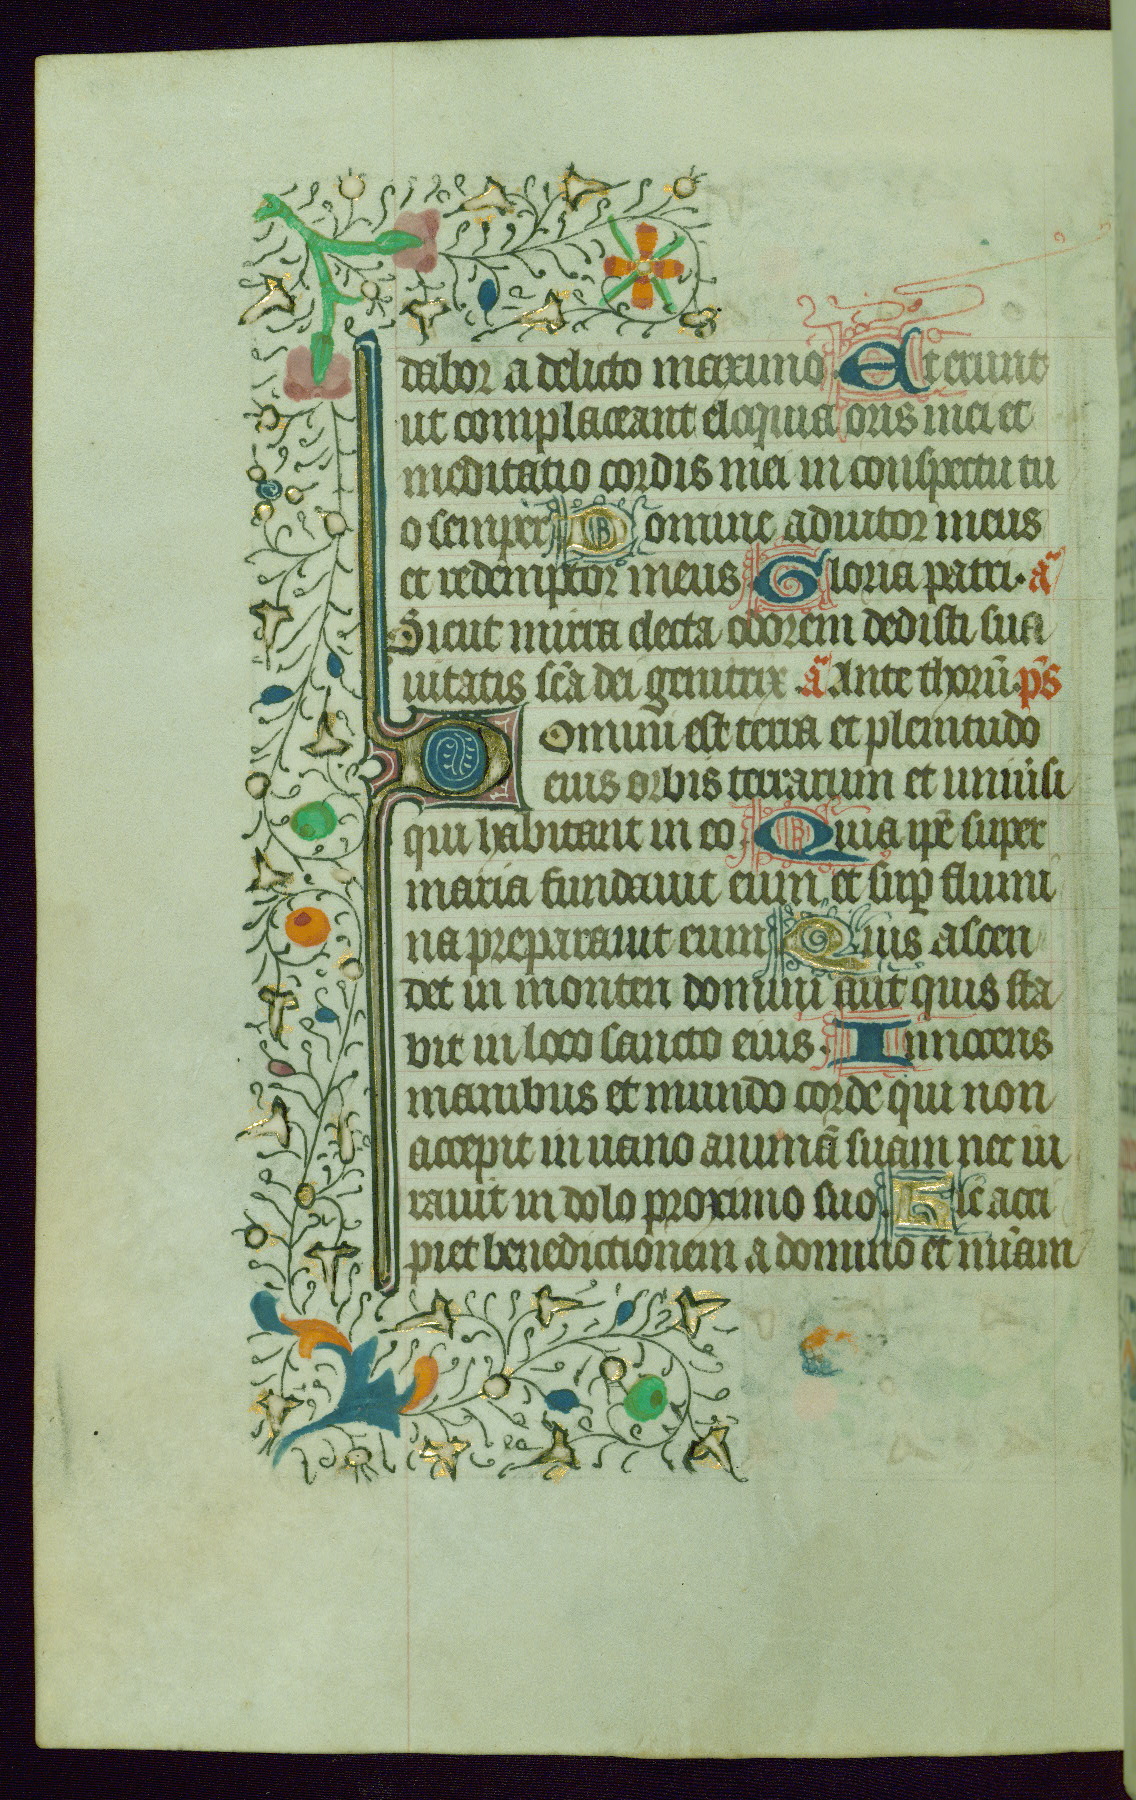 dabor a delicto maximo Et erunt
ut complaceant eloquia oris mei et
meditatio cordis mei in conspectu tu
o semper Domine adiutor meus
et redemptor meus Gloria patri. añ
Sicut mirra electa odorem dedisti sua
uitatis sc̄a dei genitrix. añ Ante thorū. ps̄
Domini est terra et plenitudo
eius orbis terrarum et uniūsi
qui habitant in eo Quia ip̄e super
maria fundauit eum et sup̱ flumi
na preparauit eum Quis ascen
det in montem domini aut quis sta
bit in loco sancto eius. Innocens
manibus et mundo corde qui non
accepit in uano animā suam nec iu
rauit in dolo proximo suo. Hic acci
piet benedictionem a domino et mīam